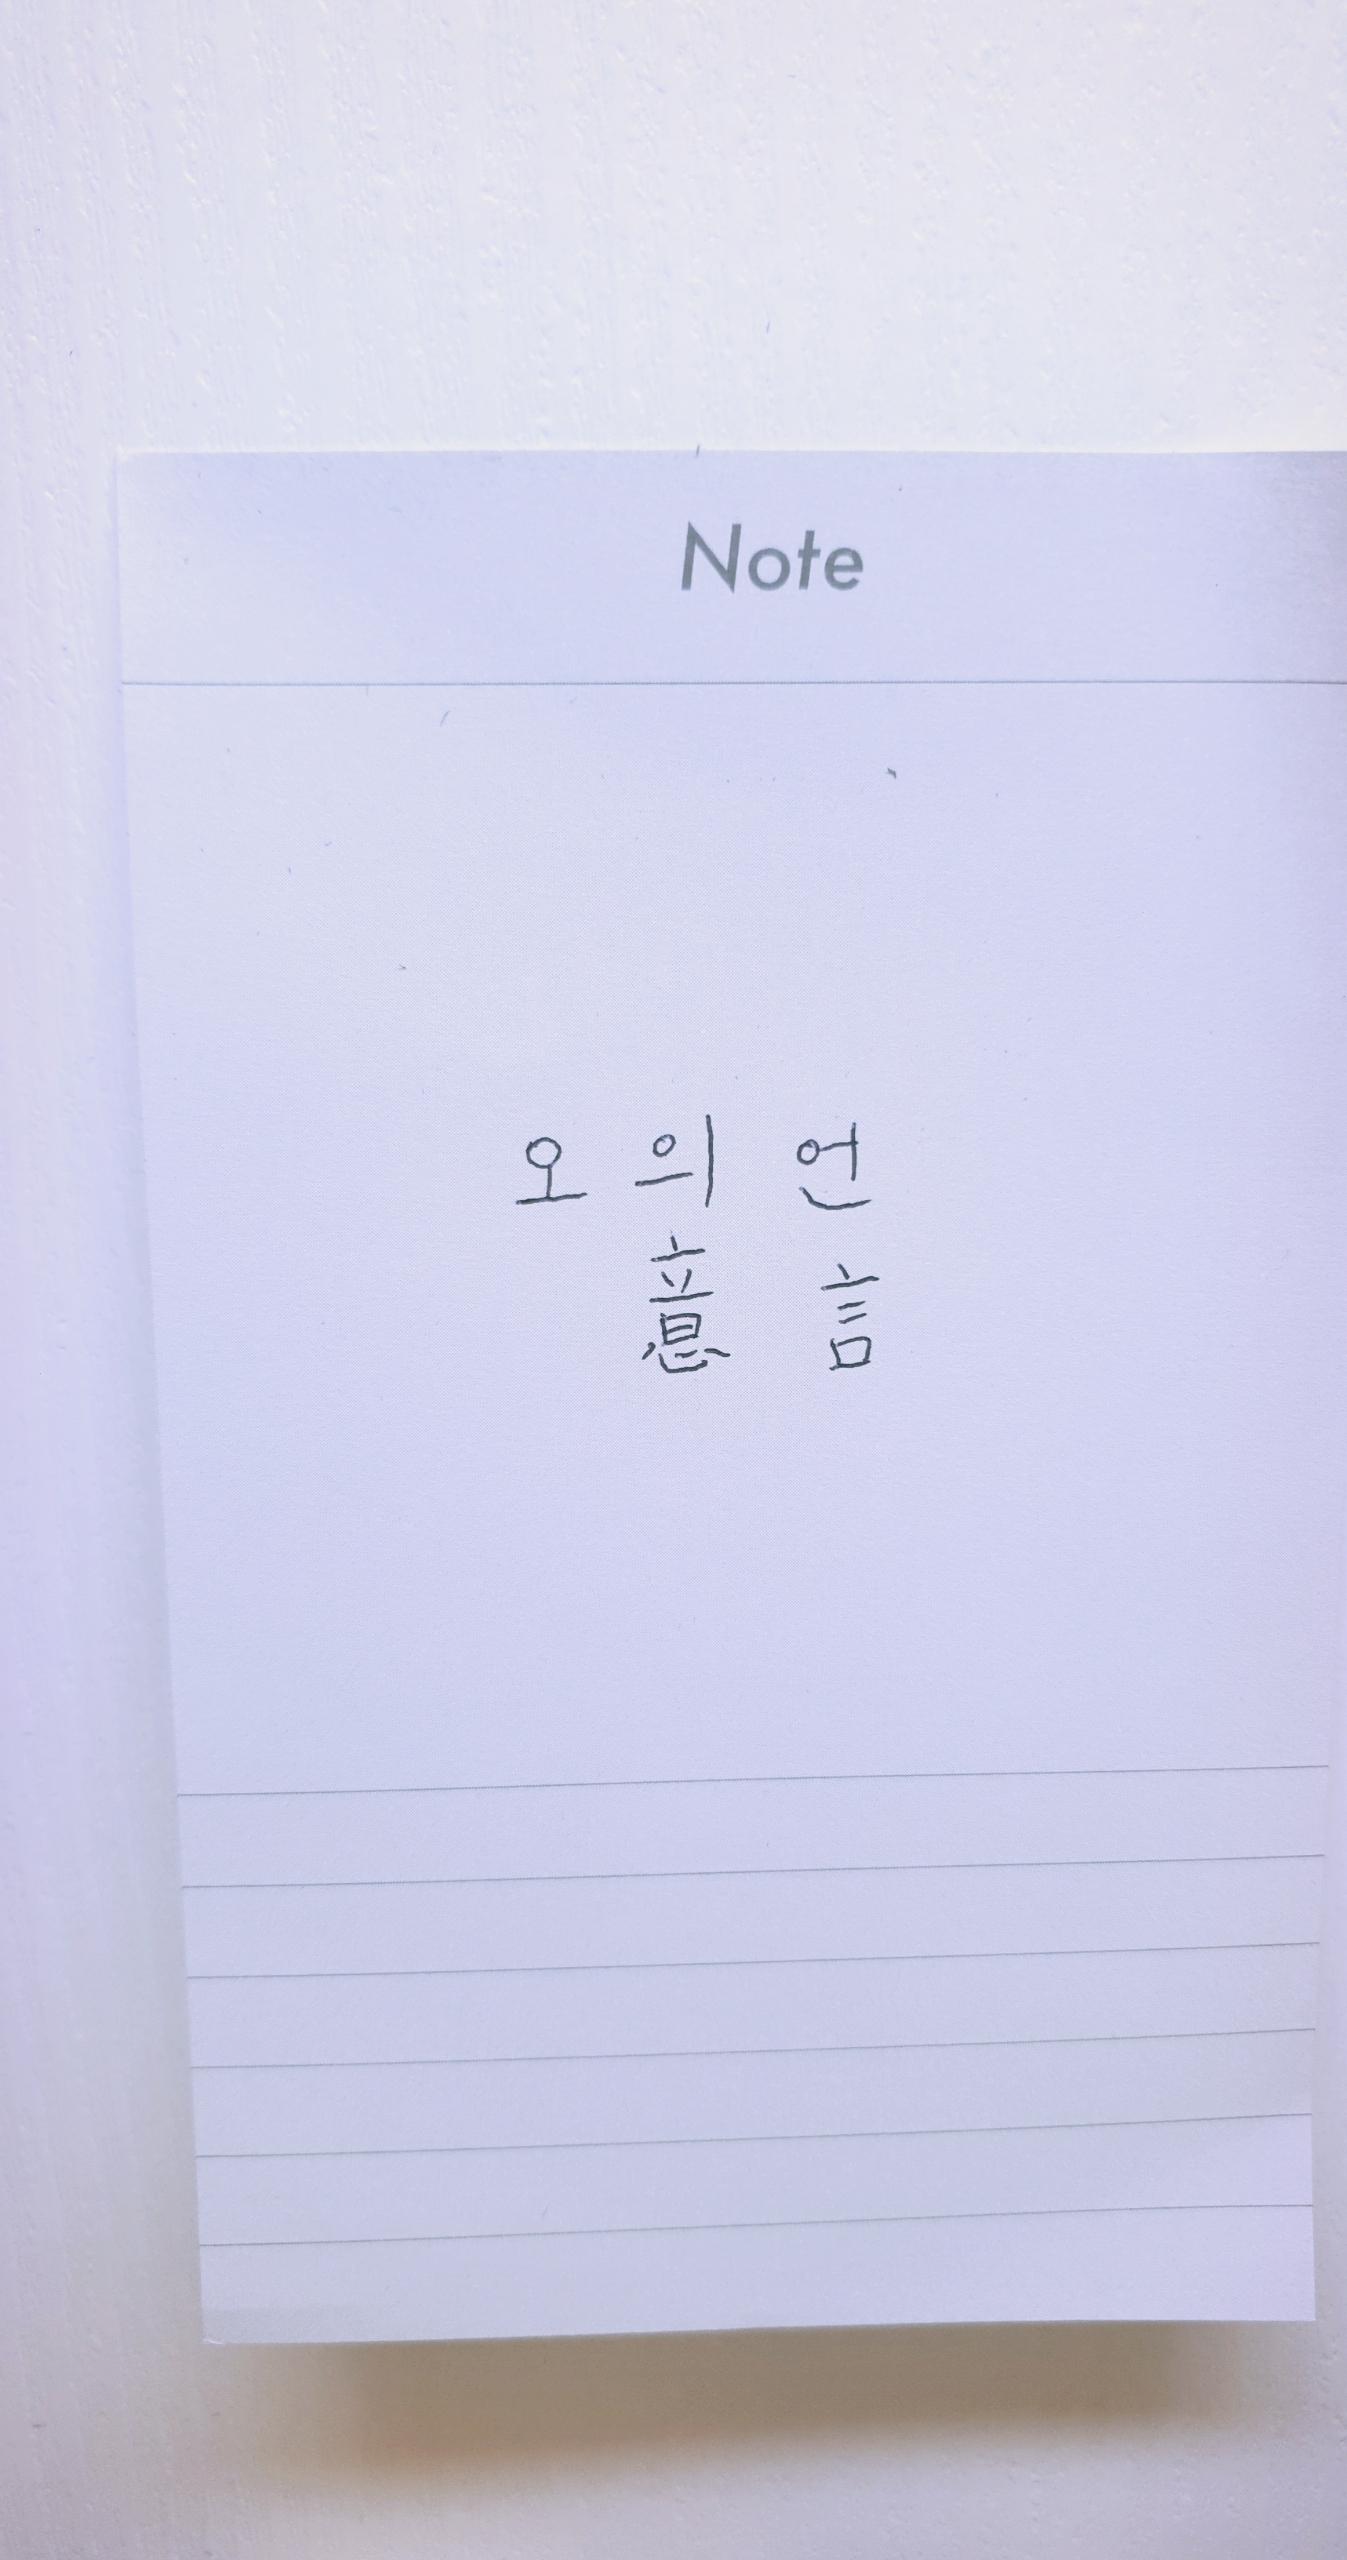 Note
오 의 언
意 言